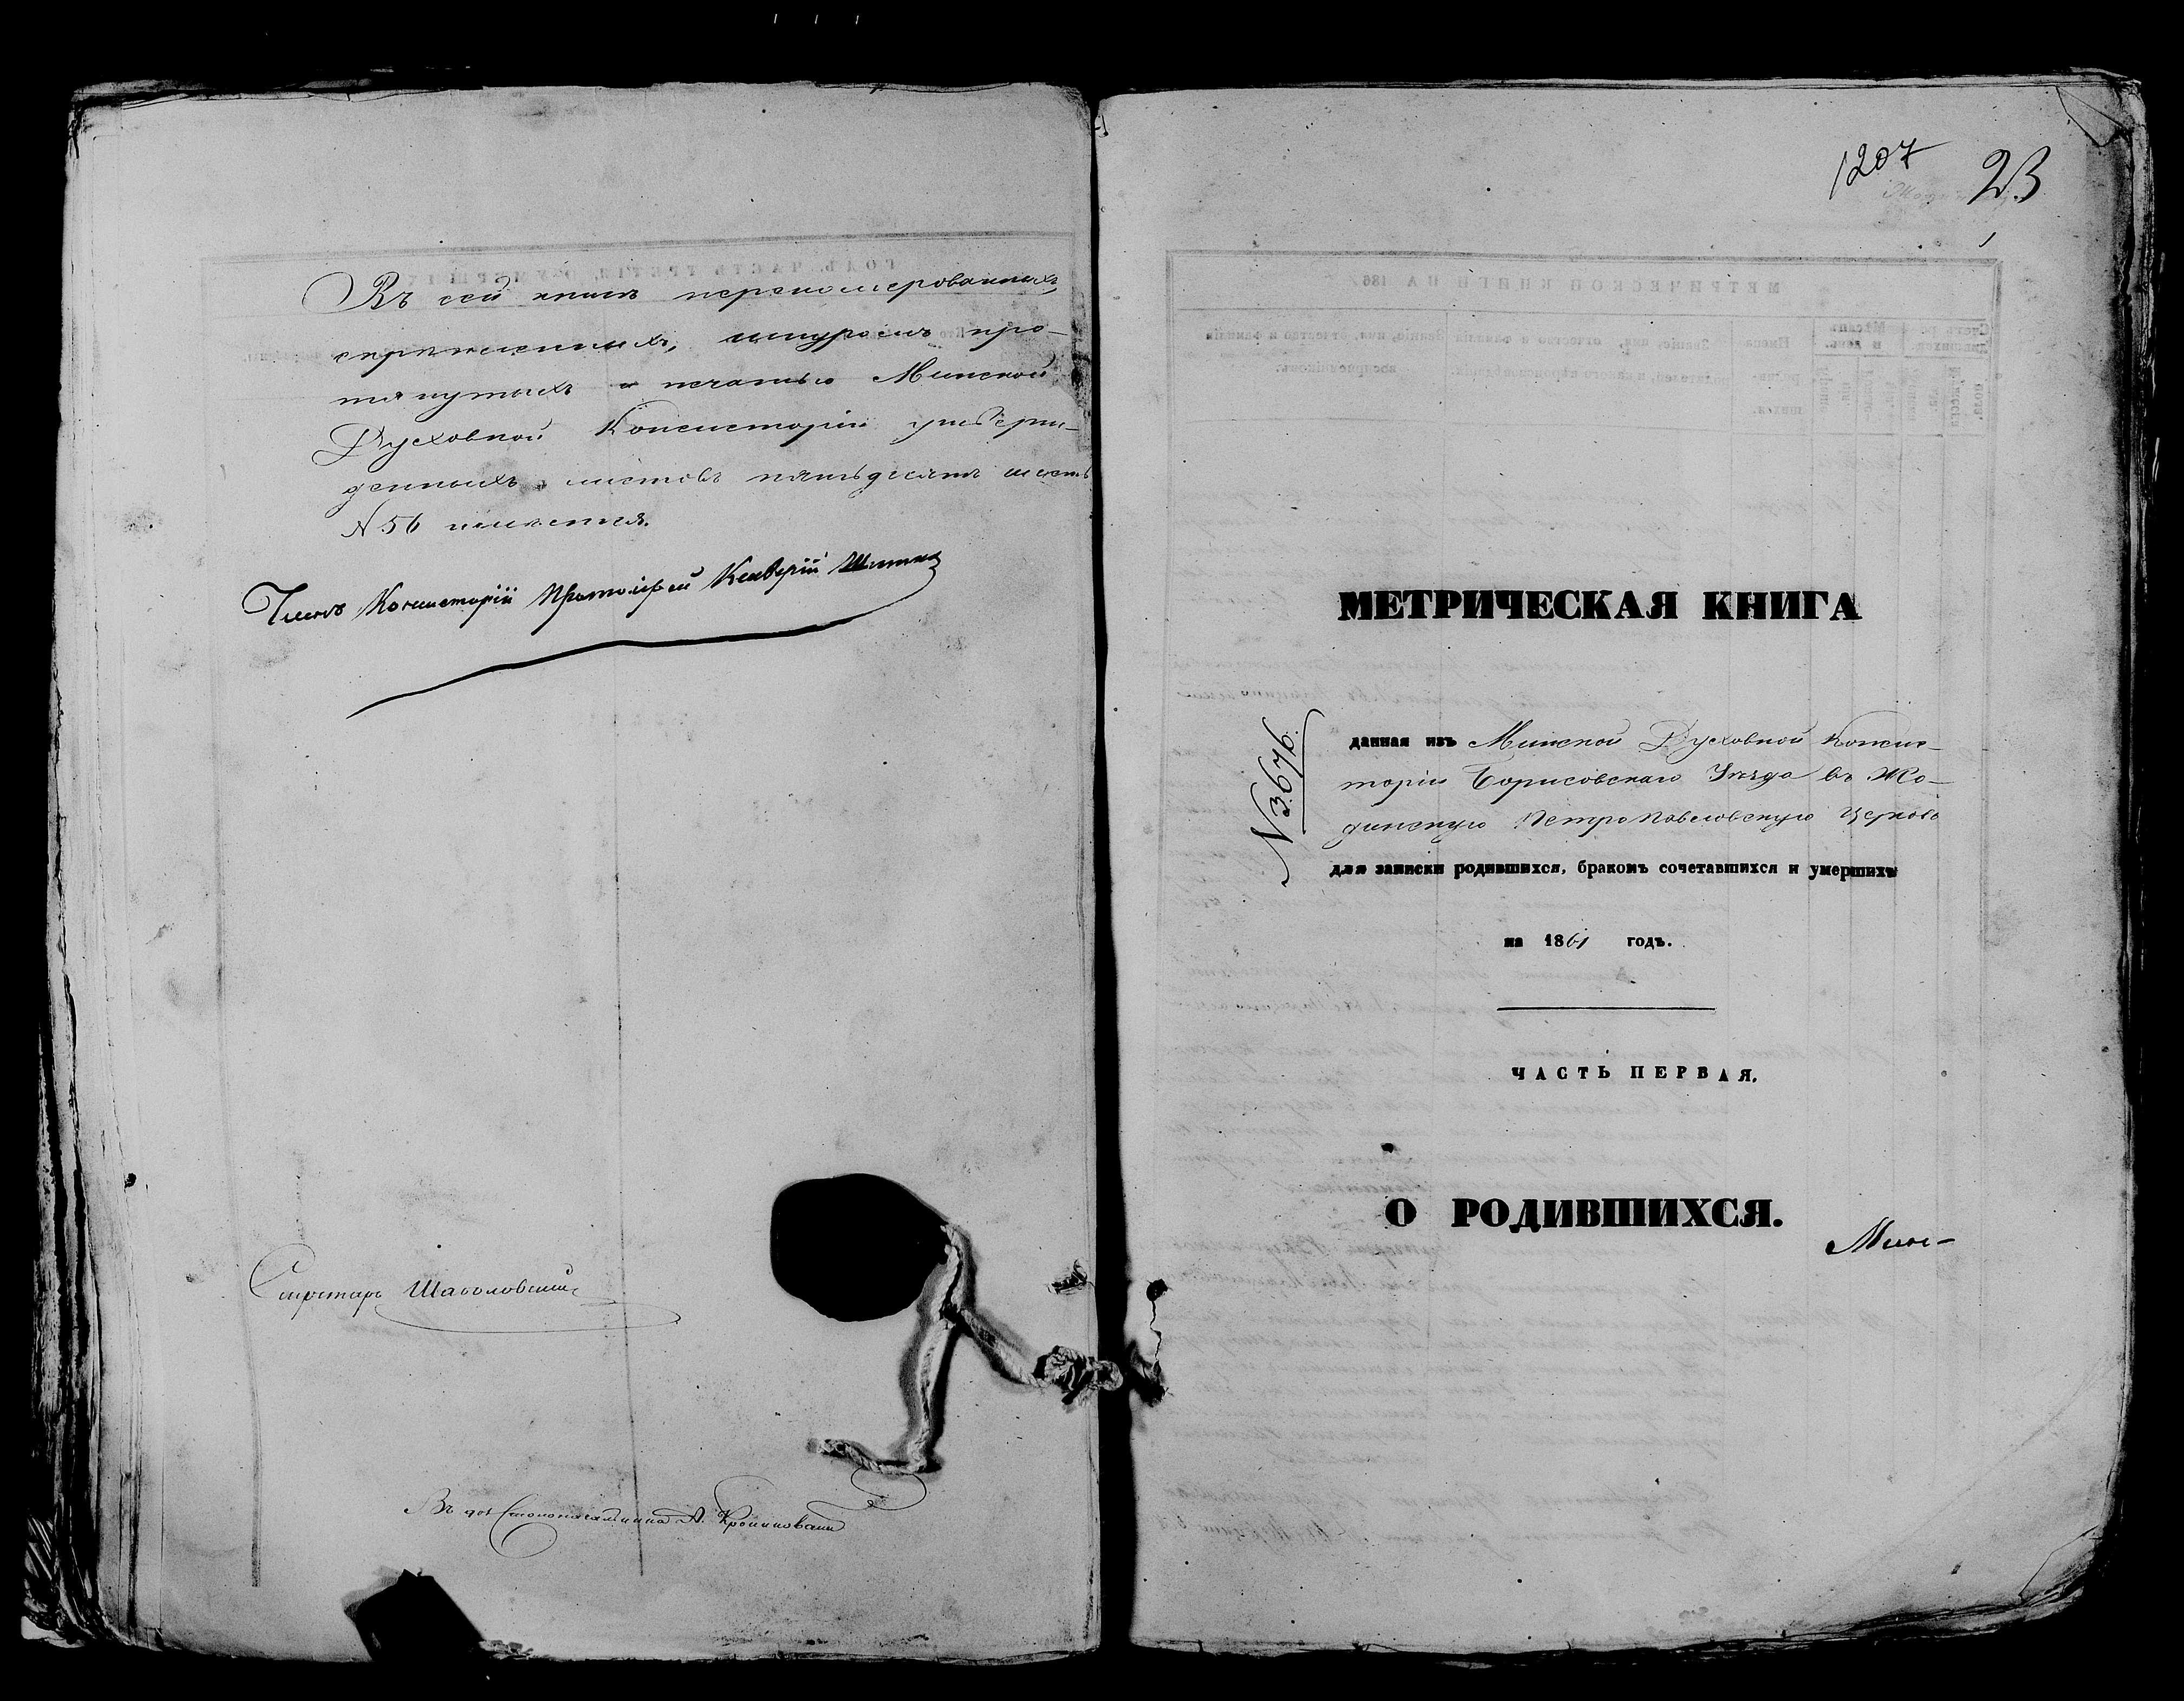 Въ сей книгѣ перенумерованныхъ,
скрѣпленныхъ, шнуромъ про-
тянутыхъ и печатью Минской
Духовной Консисторіи утверж-
денныхъ листовъ пятьдесятъ шесть
№ 56 имѣется.
Членъ Консисторіи Протоіерей
Секретарь
Въ дол. Столоначальника А.
1207
23
МЕТРИЧЕСКАЯ КНИГА
№ 3676.
данная изъ Минской Духовной Консис-
торіи Борисовскаго Уѣзда въ Жо-
динскую Петропавловскую Церковь
для записки родившихся, бракомъ сочетавшихся и умершихъ
на 1861 годъ.
ЧАСТЬ ПЕРВАЯ.
О РОДИВШИХСЯ.
Мин-